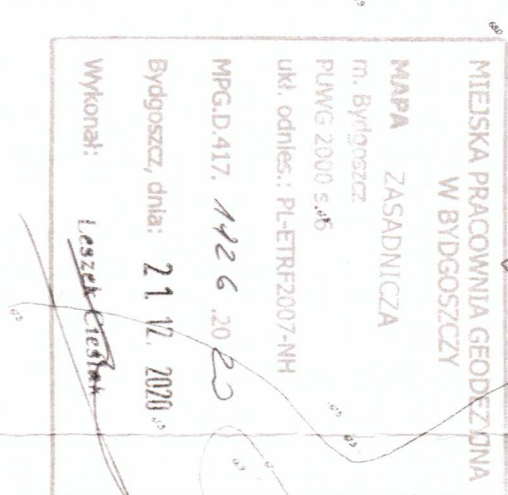 MIEJSKA PRACOWNIA GEODEZYJNA
W BYDGOSZCZY
MAPA ZASADNICZA
m. Bydgoszcz
PUWG 2000 s. 6
ukł. odnies.: PL-ETRF2007-NH
MPG.D.417. 1426 .2020
Bydgoszcz, dnia: 21. 12. 2020
Wykonał: Leszek Cieślak